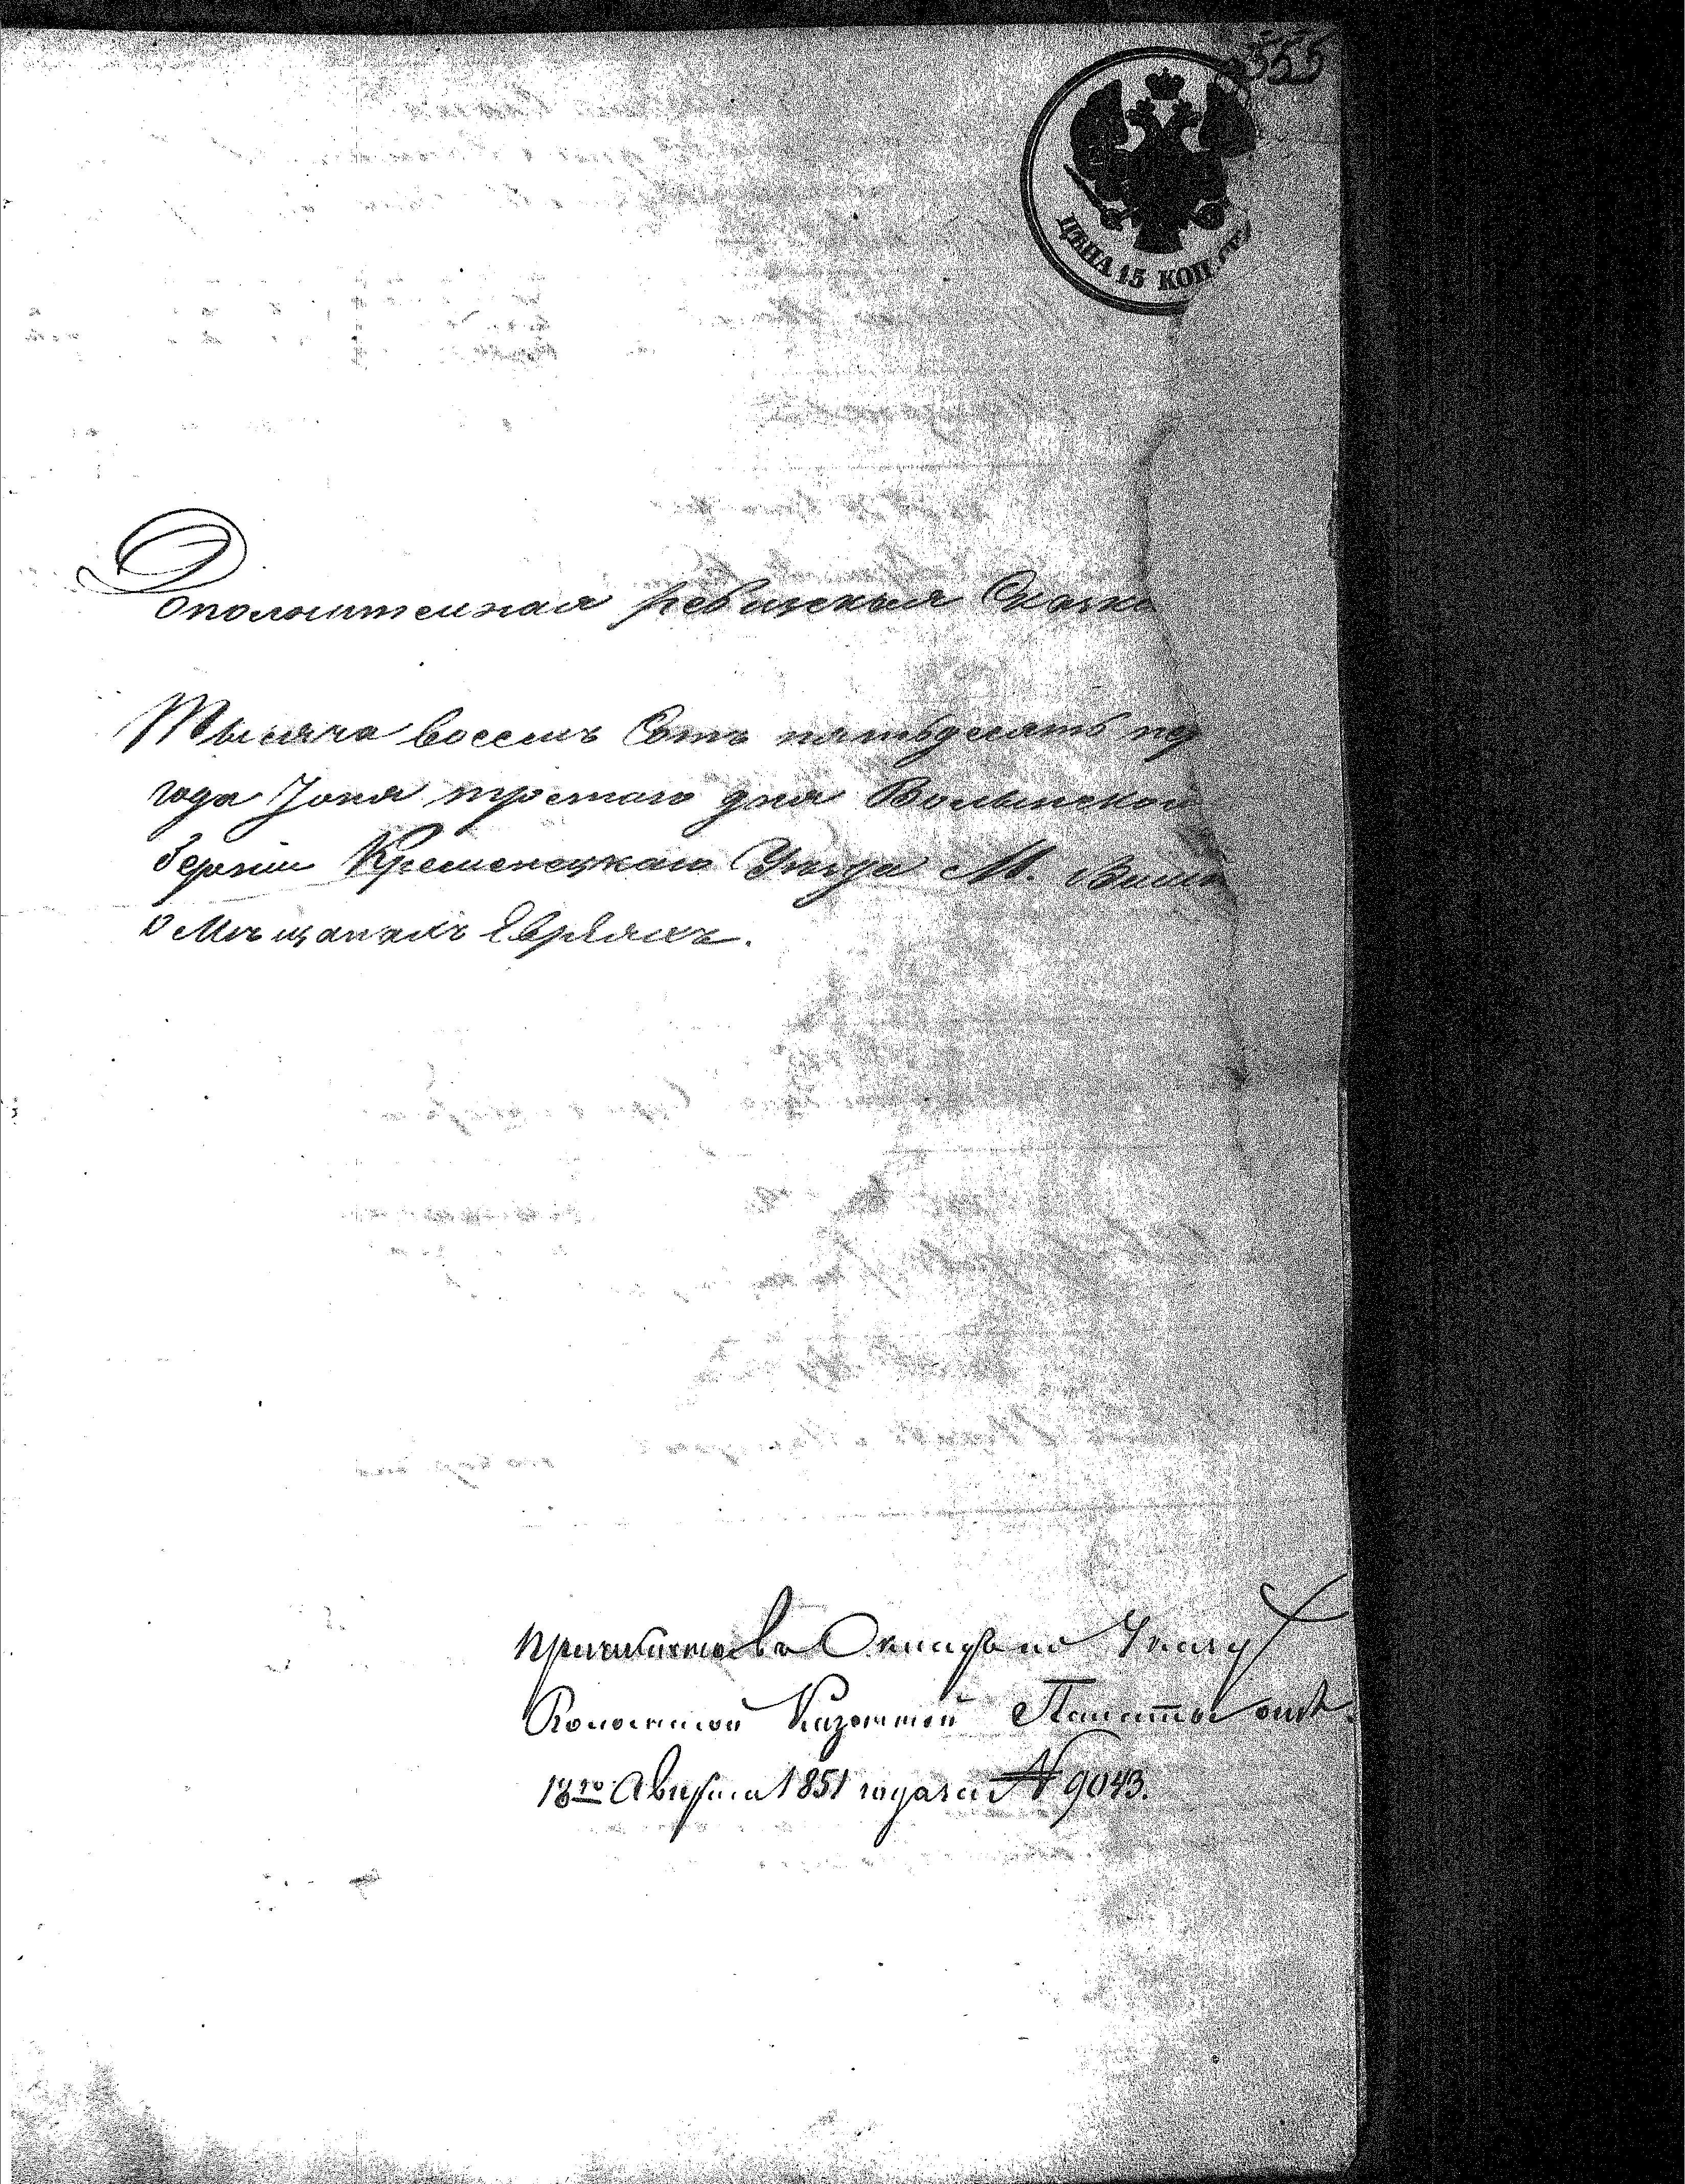 355
ЦѢНА 15 КОП. СЕ
Дополнительная ревизская Сказка
Тысяча восемь Сотъ пятьдесятъ пер
года Іюня третьяго дня Волынской
берніи Кременецкаго Уѣзда М. Вишн
о Мѣщанахъ Евреяхъ.
по Указу
Волынской Казенной Палаты отъ
18го Августа 1851 года за № 9043.